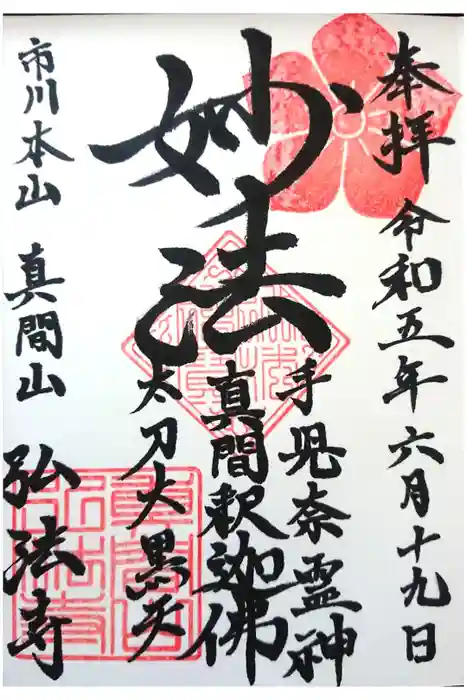 奉拝 令和五年六月十九日
妙法
手児奈霊神
真間釈迦佛
太刀大黒天
市川本山 真間山 弘法寺